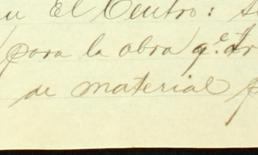 en El Centro: s
para la obra q.e tr
de material p